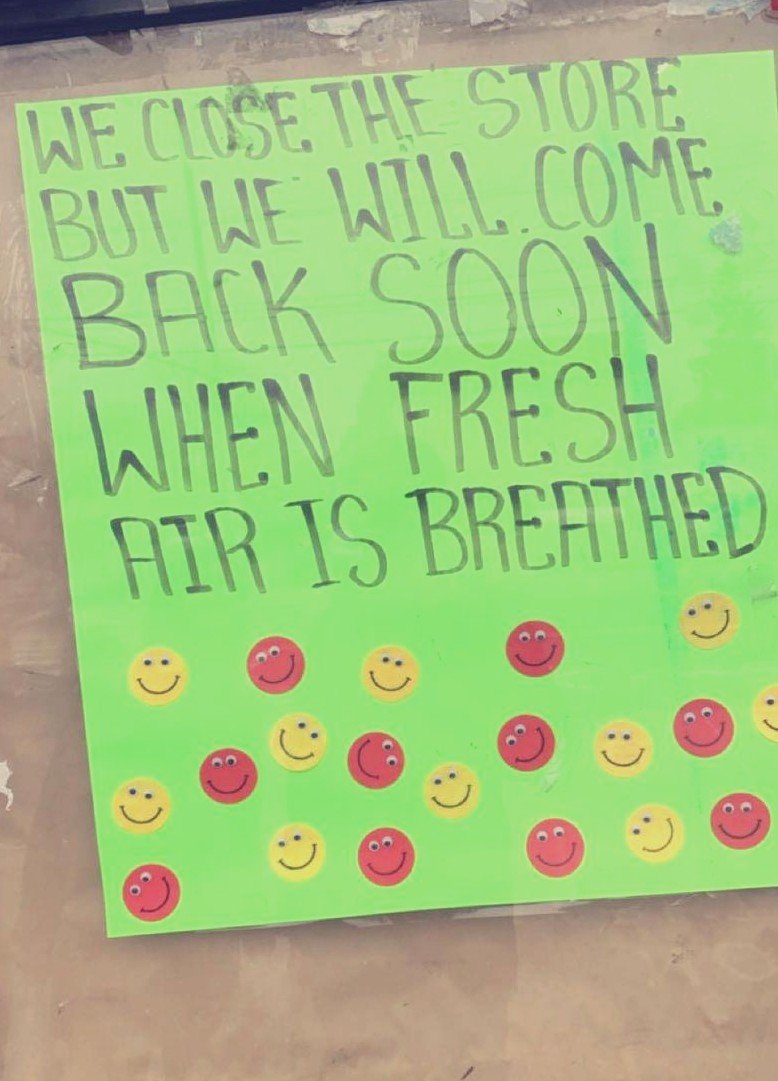 WE CLOSE THE STORE
BUT WE WILL COME
BACK SOON
WHEN FRESH
AIR IS BREATHED